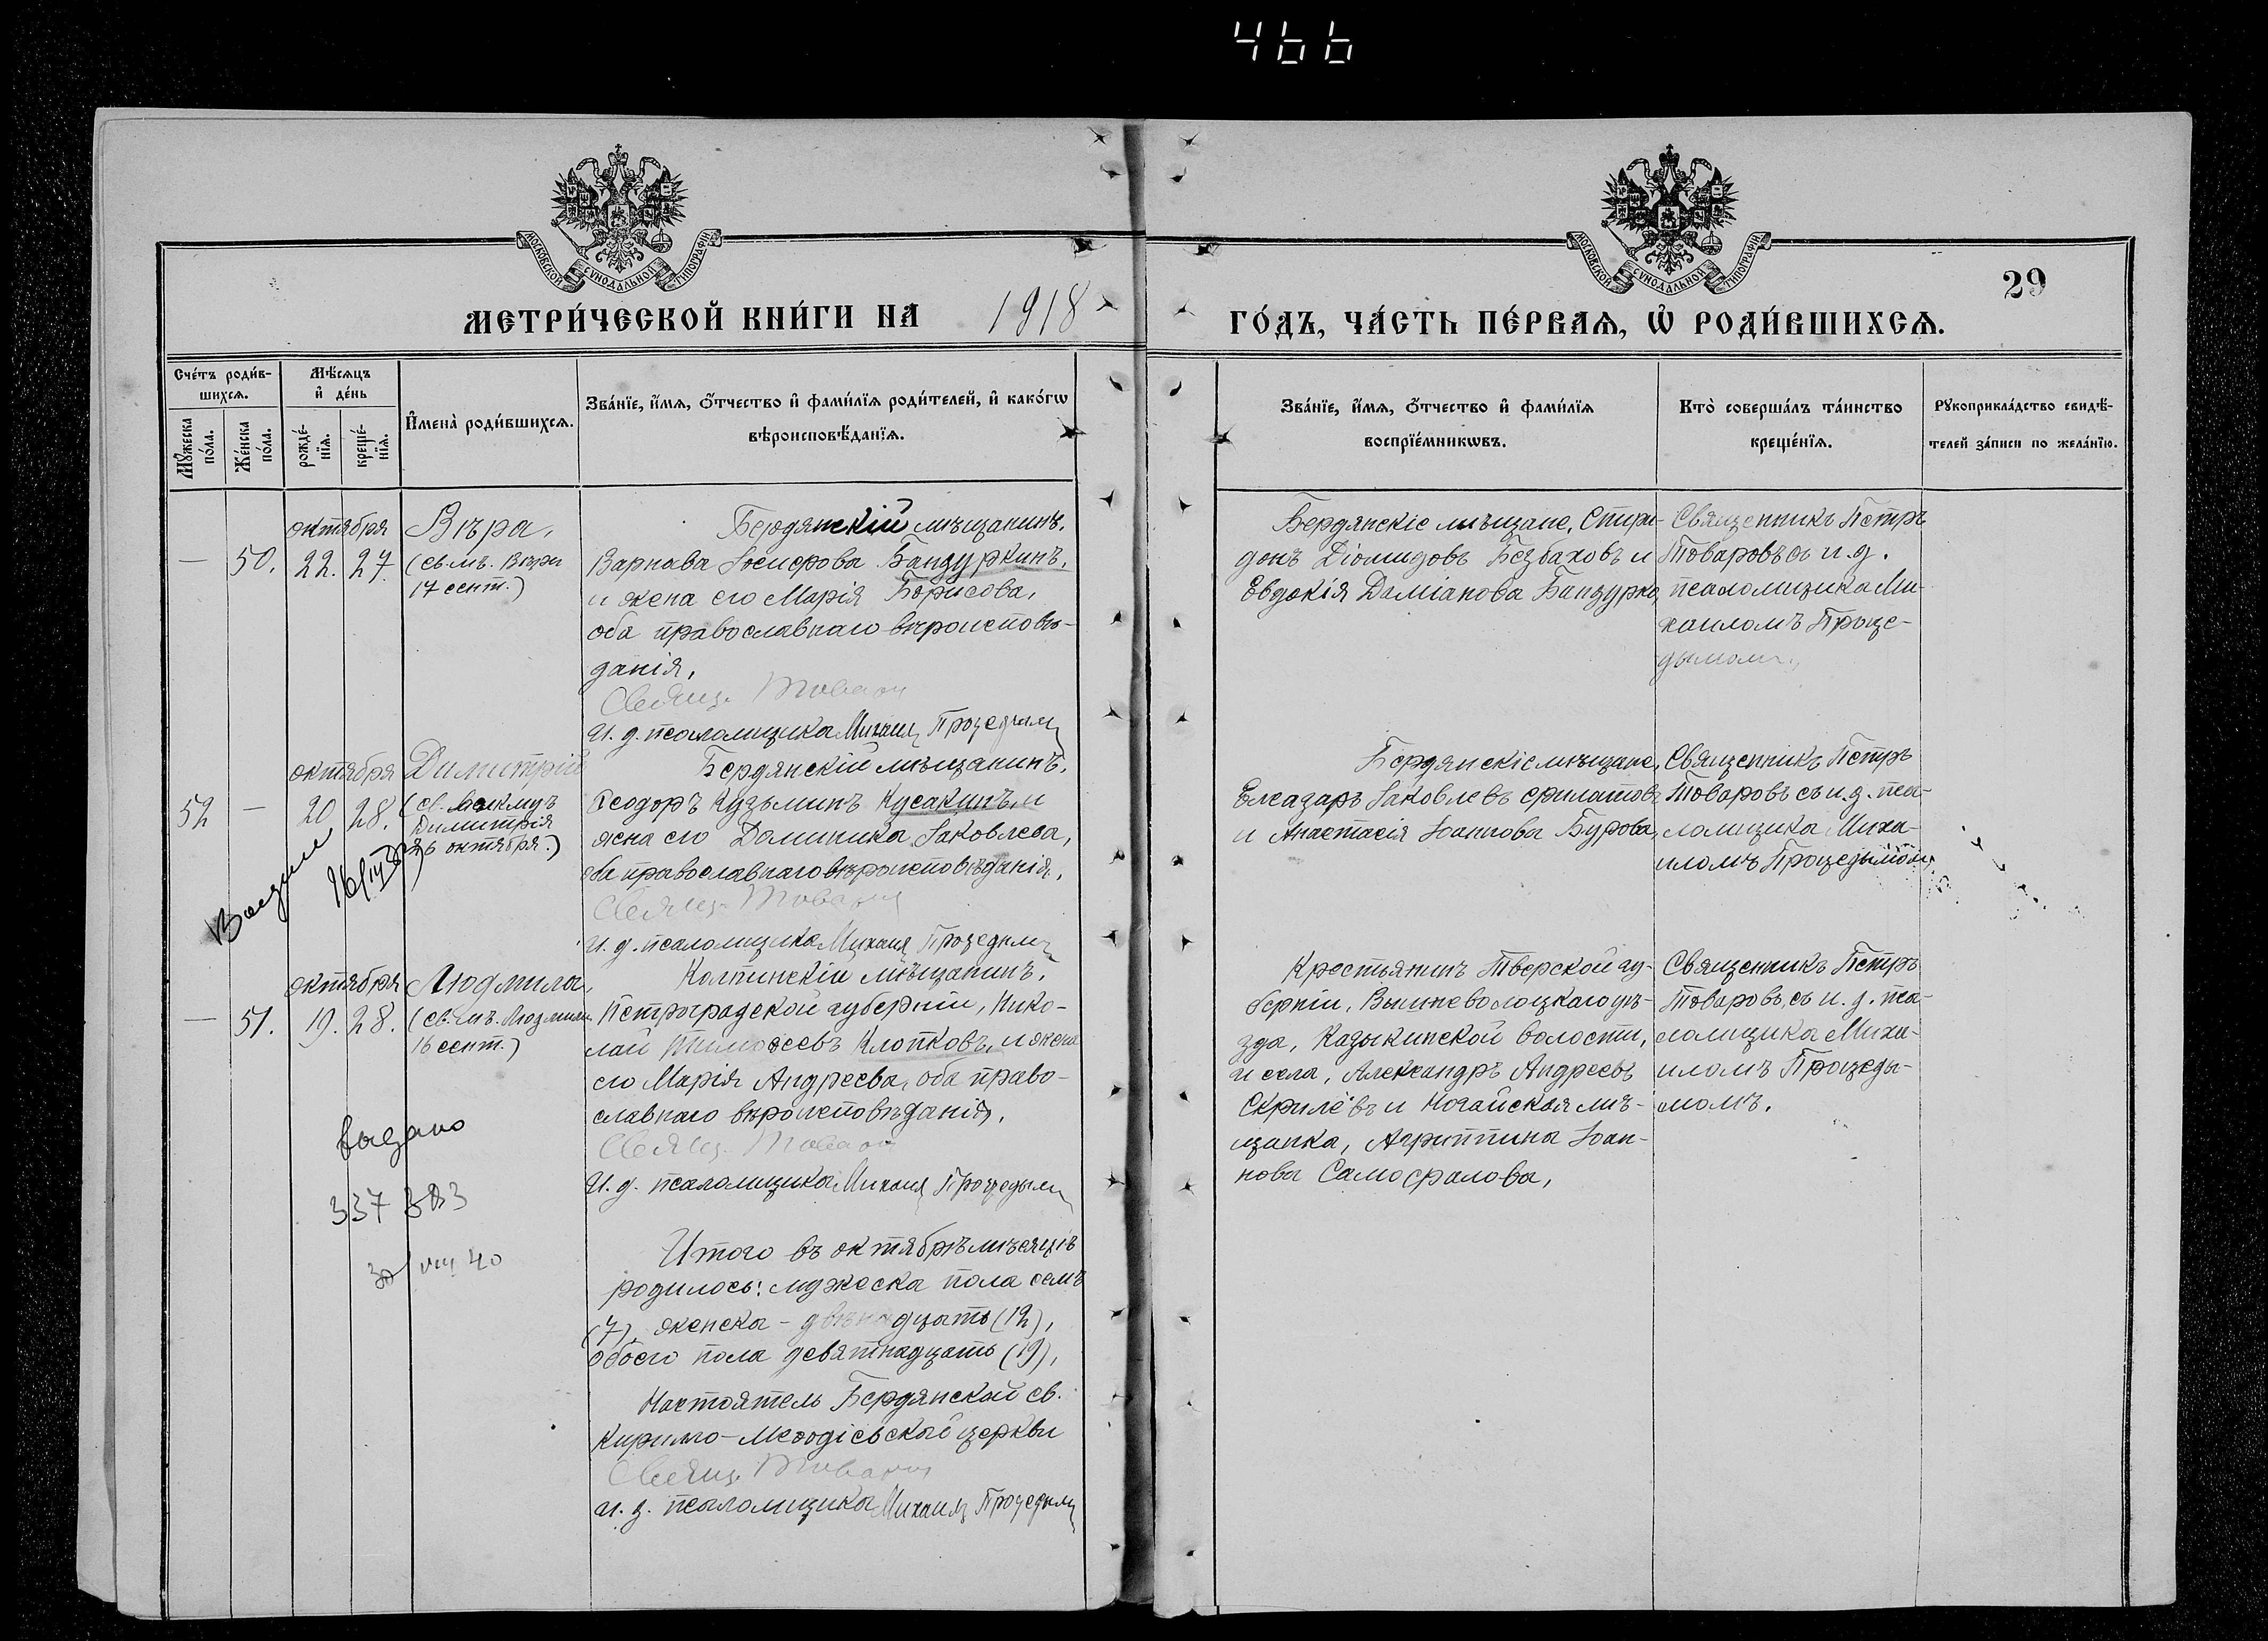 466
МОСКОВСКОЙ СѴНОДАЛЬНОЙ ТИПОГРАФІИ
МОСКОВСКОЙ СѴНОДАЛЬНОЙ ТИПОГРАФІИ
29
МЕТРИ́ЧЕСКОЙ КНИ́ГИ НА 1918 ГО́ДЪ, ЧА́СТЬ ПЕ́РВАѦ, Ѽ РОДИ́ВШИХСѦ.
Сче́тъ роди́в-
шихсѧ.
Мꙋ́жеска по́ла.
Же́нска по́ла.
Мѣ́сѧцъ
и҆ де́нь
рожде́-
нїѧ.
креще́-
нїѧ.
И҆мена̀ роди́вшихсѧ.
Зва́нїе, и҆́мѧ, ѻ҆́тчество и҆ фами́лїѧ роди́телей, и҆ како́гѡ
вѣроисповѣ́данїѧ.
Зва́нїе, и҆́мѧ, ѻ҆́тчество и҆ фами́лїѧ
воспрїе́мникѡвъ.
Кто̀ соверша́лъ та́инство
креще́нїѧ.
Рꙋкоприкла́дство свидѣ́-
телей за́писи по жела́нїю.
— 50.
октября
22. 27.
Вѣра,
(св. мъ. Вѣры
17 сент.)
Бердянскій мѣщанинъ,
Варнава Іосифовъ Бандуркинъ,
и жена его Марія Борисова,
оба православнаго вѣроисповѣ-
данія,
Свящ. Товаров
И. д. псаломщика Михаил Процедым
Бердянскіе мѣщане, Спири-
донъ Діомидовъ Безбаховъ и
Евдокія Даміанова Бандурко,
Священникъ Петръ
Товаровъ съ и. д.
псаломщика Ми-
хаиломъ Проце-
дымомъ,
52 —
октября
20 28.
Димитрій
(св. вмкмуч
Димитрія
26 октября.)
Бердянскій мѣщанинъ,
Ѳеодоръ Кузьминъ Кусакинъ и
жена его Домника Іаковлева,
оба православнаго вѣроисповѣданія,
Свящ. Товаров
И. д. псаломщика Михаил Процедым
Бердянскіе мѣщане,
Елеазаръ Іаковлевъ Филатовъ
и Анастасія Іоаннова Бурова,
Священникъ Петръ
Товаровъ съ и. д. пса-
ломщика Миха-
иломъ Процедымом,
— 51.
октября
19. 28.
Людмила,
(св. мъ. Людмилы
16 сент.)
Колпинскій мѣщанинъ,
Петроградской губерніи, Нико-
лай Тимоѳеевъ Клопковъ, и жена
его Марія Андреева, оба право-
славнаго вѣроисповѣданія,
Свящ. Товаров
И. д. псаломщика Михаил Процедым
Крестьянинъ Тверской гу-
берніи, Вышневолоцкаго уѣ-
зда, Казыкинской волости,
и села, Александръ Андреевъ
Скрилёвъ и Ногайская мѣ-
щанка, Агриппина Іоан-
нова Самофалова,
Священникъ Петръ
Товаровъ, съ и. д. пса-
ломщика Миха-
иломъ Процеды-
момъ.
выдано
30/VIII 40
Итого въ октябрѣ мѣсяцѣ
родилось: мужеска пола семь
(7), женска - двѣнадцать (12),
обоего пола девятнадцать (19),
Настоятель Бердянской св.
Кирилло-Меѳодіевской церкви
Свящ. Товаров
И. д. псаломщика Михаил Процедым